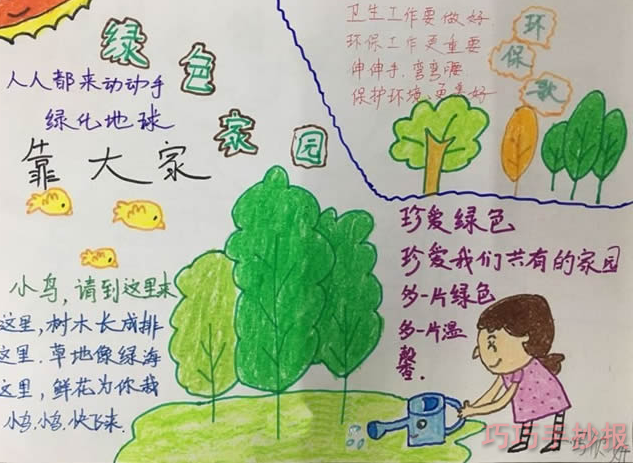 绿色家园
人人都来动动手
绿化地球
靠大家
小鸟,请到这里来
这里,树木长成排
这里.草地像绿海
这里,鲜花为你栽
小鸟.小鸟.快飞来.
环保歌
卫生工作要做好
环保工作更重要
伸伸手.弯弯腰
保护环境.更美好
珍爱绿色
珍爱我们共有的家园
多一片绿色
多一片温
馨.
巧巧手抄报